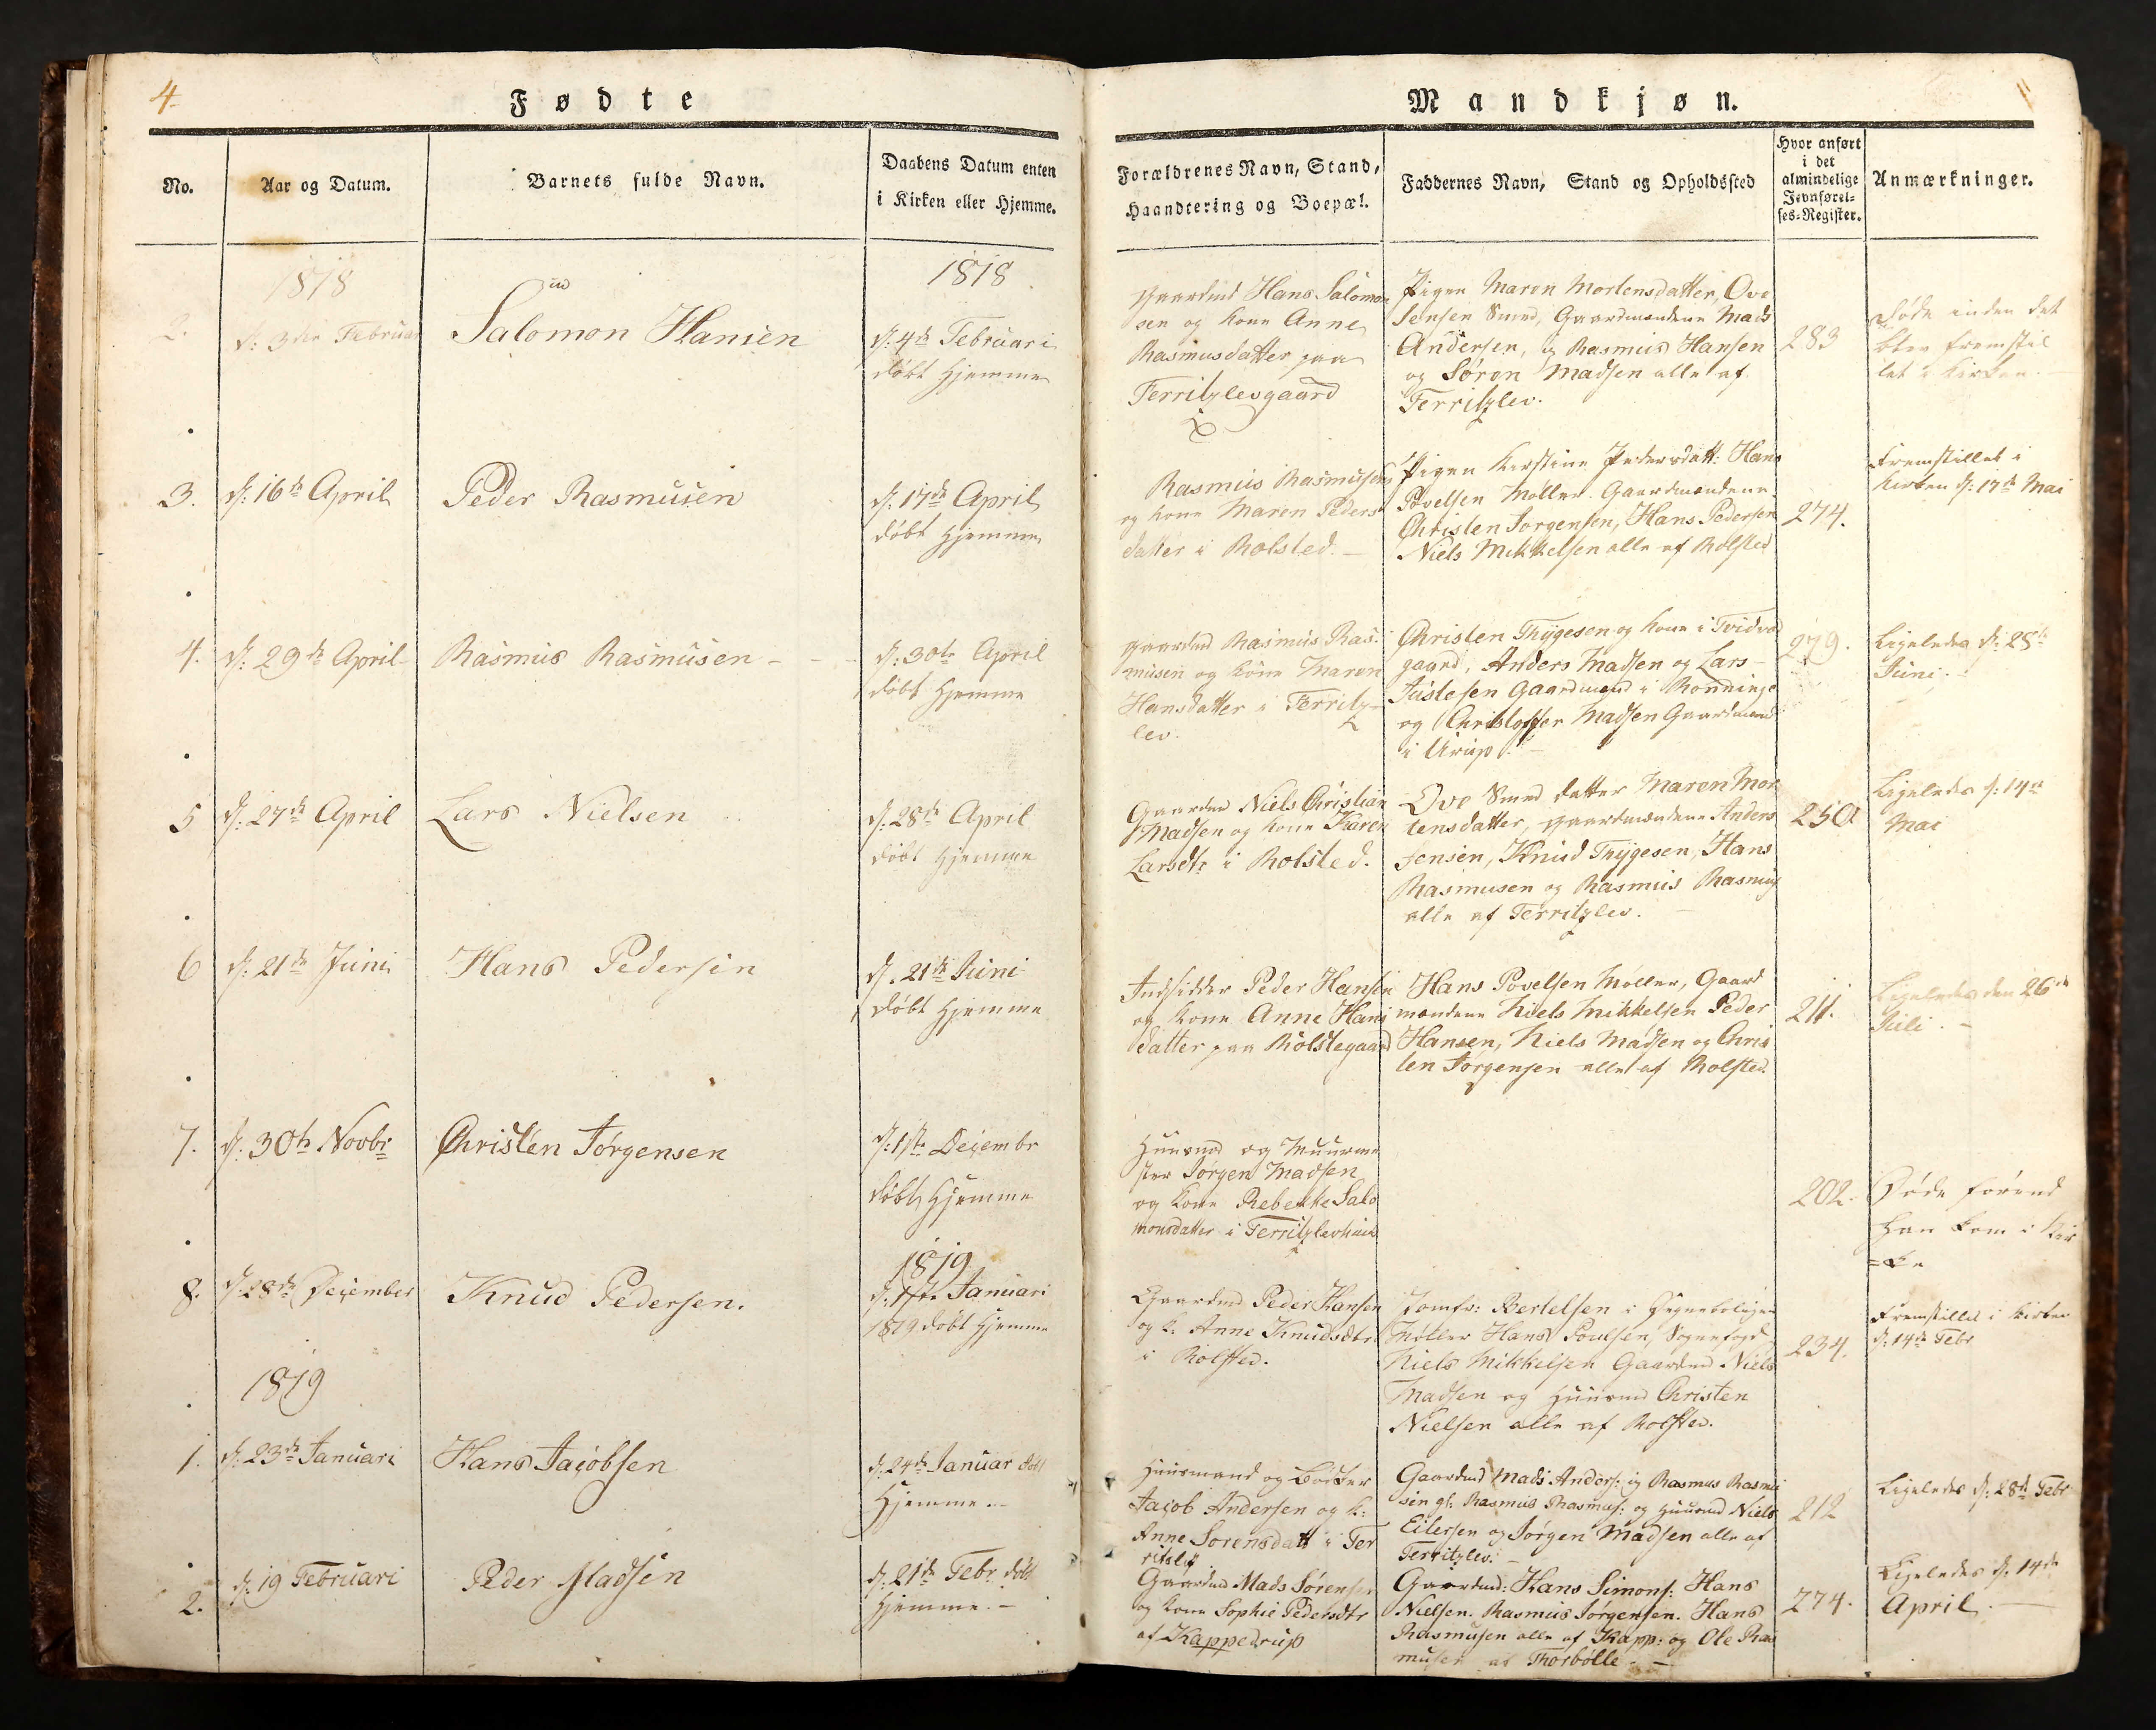 4.
Fødte
Mandkjøn.
No.
Aar og Datum.
Barnets fulde Navn.
Daabens Datum enten
i Kirken eller Hjemme.
Forældrenes Navn, Stand,
Haandtering og Boepæl.
Faddernes Navn, Stand og Opholdssted
Hvor anført
i det
almindelige
Jevnførel-
ses-Register.
Anmærkninger.
1818
2.
d: 3die Februar
Salomon Hansen
1818
d: 4de Februari
døbt Hjemme
Gaardmd Hans Salomon
sen og Kone Anne
Rasmusdatter paa
Ferritzlevgaard
Pigen Maren Mortensdatter, Ove
Jensen Smed, Gaardmændene Mads
Andersen, og Rasmus Hansen
og Søren Madsen alle af
Ferritzlev.
283
Døde inden det
blev fremstil
let i Kirken.
3.
d: 16de April
Peder Rasmusen
d: 17de April
døbt Hjemme
Rasmus Rasmusen
og Kone Maren Peders
datter i Rolsted. —
Pigen Kirstine Pedersdatt: Hans
Povelsen Møller. Gaardmændene
Christen Jørgensen, Hans Pedersen
Niels Mikkelsen alle af Rolsted
274.
Fremstillet i
Kirken d: 17de Mai
4.
d: 29de April
Rasmus Rasmusen
d: 30te April
døbt Hjemme
Gaardmd Rasmus Ras-
musen og Kone Maren
Hansdatter i Ferritz-
lev.
Christen Thygesen og Kone i
gaard, Anders Madsen og Lars
Justesen Gaardmænd i Rønninge
og Christoffer Madsen Gaardmand
i Urup. —
279.
Ligeledes d: 28de
Juni.
5
d: 27de April
Lars Nielsen
d: 28de April
døbt Hjemme
Gaardmd Niels Christian
Madsen og Kone Karen
Larsdtr i Rolsted.
Ove Smed datter Maren Mor
tensdatter, Gaardmændene Anders
Jensen, Knud Thygesen, Hans
Rasmusen og Rasmus Rasmus
alle af Ferritzlev.
250
Ligeledes d: 14de
Mai
6
d: 21de Juni
Hans Pedersen
d. 21de Juni
døbt Hjemme
Indsidder Peder Hansen
og Kone Anne Hans
datter paa Rolstegaard
Hans Povelsen Møller, Gaard
mændene Niels Mikkelsen Peder
Hansen, Niels Madsen og Chris
ten Jørgensen alle af Rolsted.
211.
Ligeledes den 26de
Juli. —
7.
d: 30te Novbr
Christen Jørgensen
d: 1ste Decembr
døbt Hjemme
Huusmd og Muurme
ster Jørgen Madsen
og Kone Rebekke Salo
monsdatter i Ferritzlevhuus
202.
Døde førend
han kom i Kir
=ke
8.
d: 28de December
Knud Pedersen.
1819
d: 1ste Januari
1819 døbt Hjemme
Gaardmd Peder Hansen
og K: Anne Knudsdtr
i Rolsted.
Jomfr: Bertelsen i
Møller Hans Poulsen, Sognefoged
Niels Mikkelsen Gaardmd Niels
Madsen og Huusmd Christen
Nielsen alle af Rolsted.
234.
Fremstillet i Kirken
d: 14de Febr
1819
1.
d: 23de Januari
Hans Jacobsen
d: 24de Januar døbt
Hjemme. —
Huusmand og Bødker
Jacob Andersen og K:
Anne Sorensdatt i Fer
ritslev
Gaardmd Mads Anders: og Rasmus Rasmu
sen gl: Rasmus Rasmus: og Huusmd Niels
Eilersen og Jørgen Madsen alle af
Ferritzlev. —
212
Ligeledes d: 28de Febr
2.
d: 19 Februari
Peder Madsen
d: 21de Febr døbt
Hjemme. —
Gaardmd Mads Sørensen
og Kone Sophie Pedersdtr
af Kappedrup
Gaardmd: Hans Simons: Hans
Nielsen. Rasmus Jørgensen. Hans
Rasmusen alle af Kapp: og Ole Ras
musen af Thorbølle. —
274.
Ligeledes d: 14de
April. —